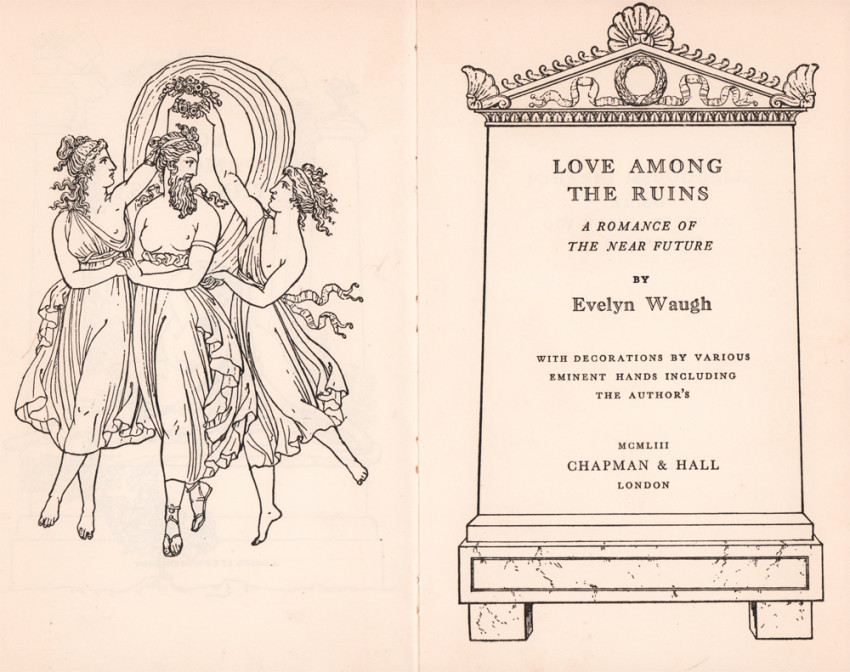 LOVE AMONG
THE RUINS
A ROMANCE OF
THE NEAR FUTURE
BY
Evelyn Waugh
WITH DECORATIONS BY VARIOUS
EMINENT HANDS INCLUDING
THE AUTHOR'S
MCMLIII
CHAPMAN & HALL
LONDON